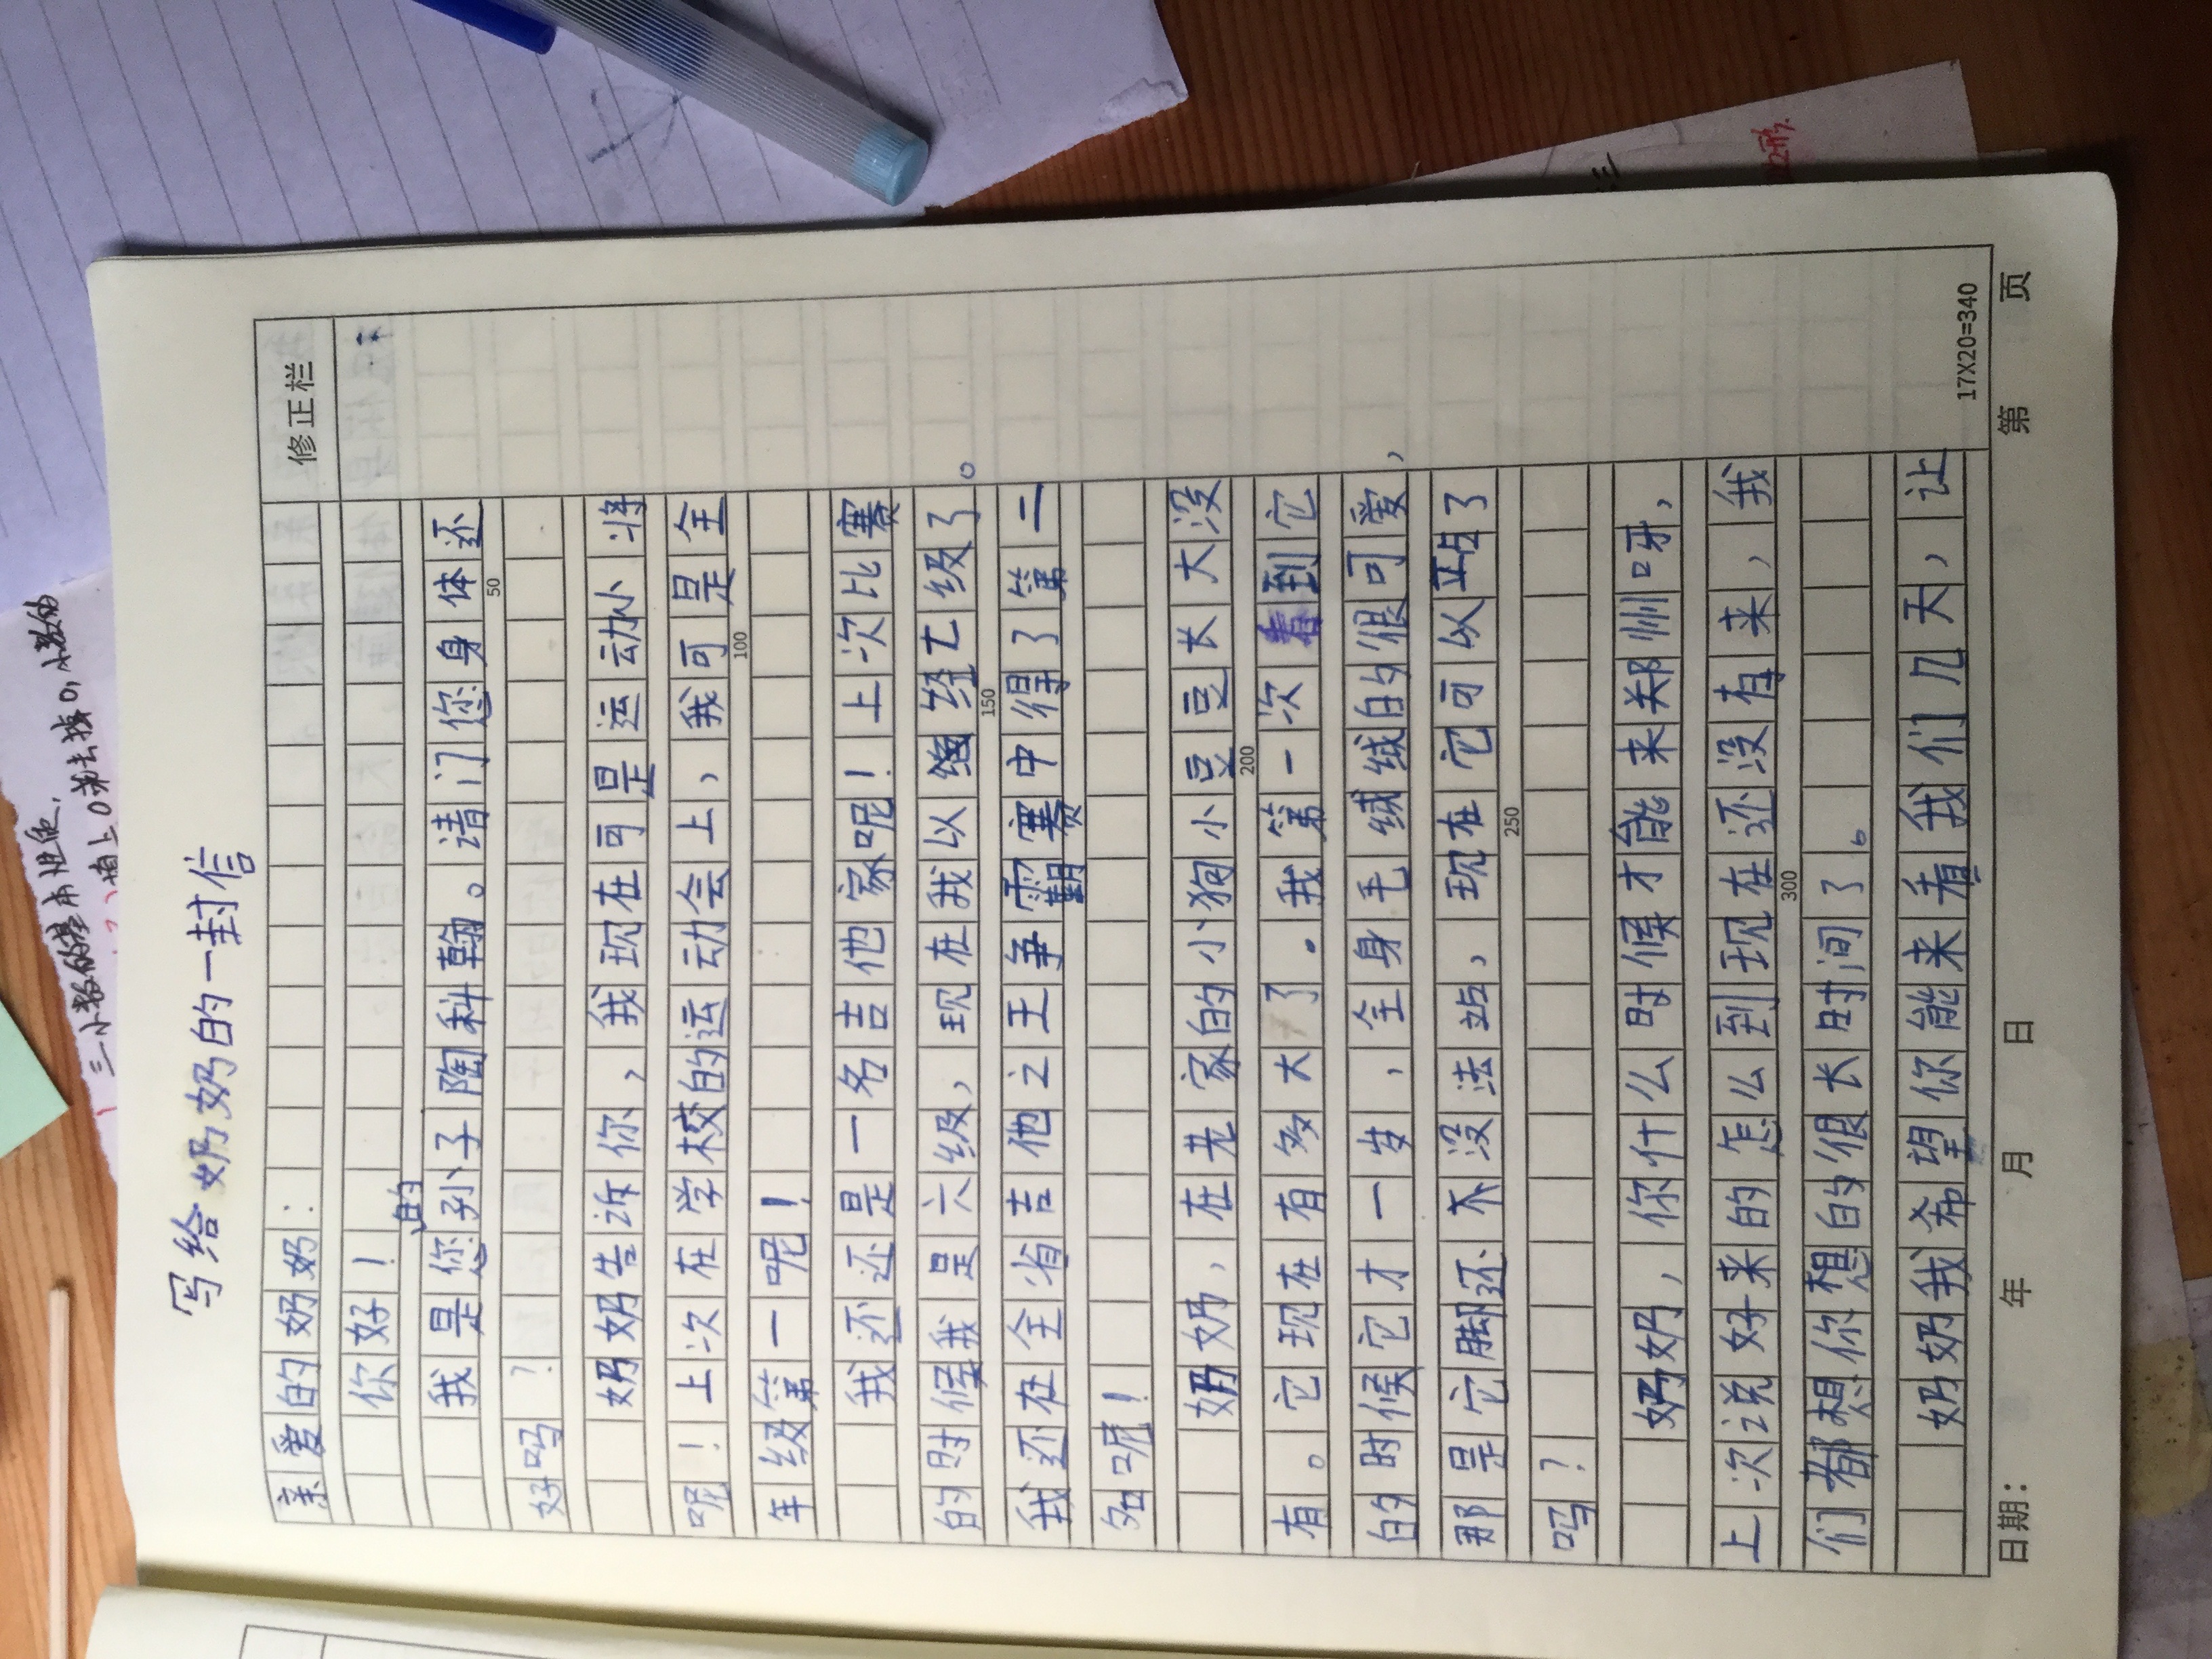 写给奶奶的一封信
修正栏
亲爱的奶奶:
你好!
我是您的孙子陶科翰。请门您身体还
好吗?
奶奶告诉你,我现在可是运动小将
呢!上次在学校的运动会上,我可是全
年级第一呢!
我还是一名吉他家呢!上次比赛
的时候我是六级,现在我以经七级了。
我还在全省吉他之王争霸赛中得了第二
名呢!
奶奶,在老家的小狗小豆豆长大没
有。它现在有多大了.我第一次看到它
的时候它才一岁,全身毛绒绒白的很可爱,
那是它脚还不没法站,现在它可以站了
吗?
奶奶,你什么时候才能来郑州呀,
上次说好来的怎么到现在还没有来,我
们都想你想的很长时间了。
奶奶我希望你能来看我们几天,让
50
100
150
200
250
300
17X20=340
日期: 年 月 日 第 页